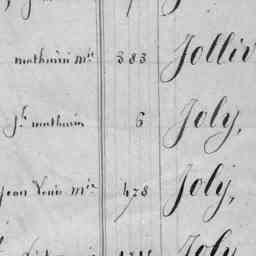 mathurin Mie 383 Jolliv
Jh mathurin 6 Joly,
Jean Louis Mie 478 Joly,
Joly